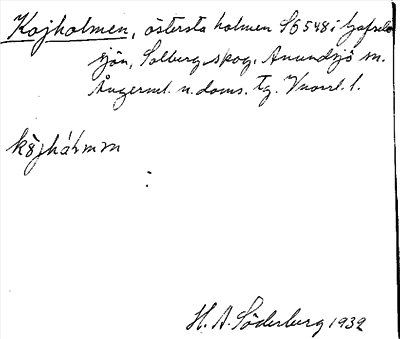 Kojholmen, östersta holmen SO 548 i Gafsele
sjön, Solberg skog, Anundsjö sn.
Ångerml. n. doms. tg. Vnorrl. l.
kŏjhám̀m
H. A. Söderberg 1932